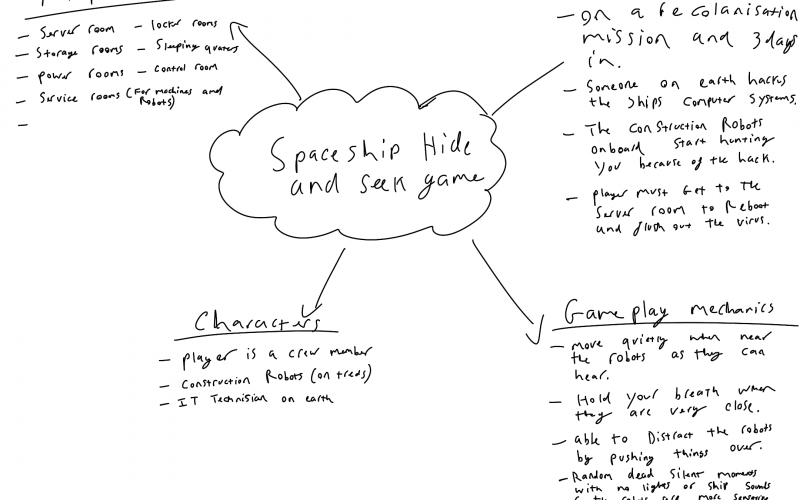 - Server room - locker rooms
- Storage rooms - Sleeping quates
- power rooms - control room
- Service rooms (For machines and
Robots)
-
Spaceship Hide
and seek game
- on a re colanisation
mission and 3days
in.
- Someone on earth hacks
the ships computer systems.
- The construction Robots
onboard start hunting
you because of the hack.
- player must Get to the
Server room to Reboot
and flush out the virus.
Characters
- player is a crew member
- Construction Robots (on treds)
- IT Technisian on earth
Gameplay mechanics
- move quietly when near
the robots as they can
hear.
- Hold your breath when
they are very close.
- able to Distract the robots
by pushing things over.
- Random dead silent moments
with no lights or ship sounds